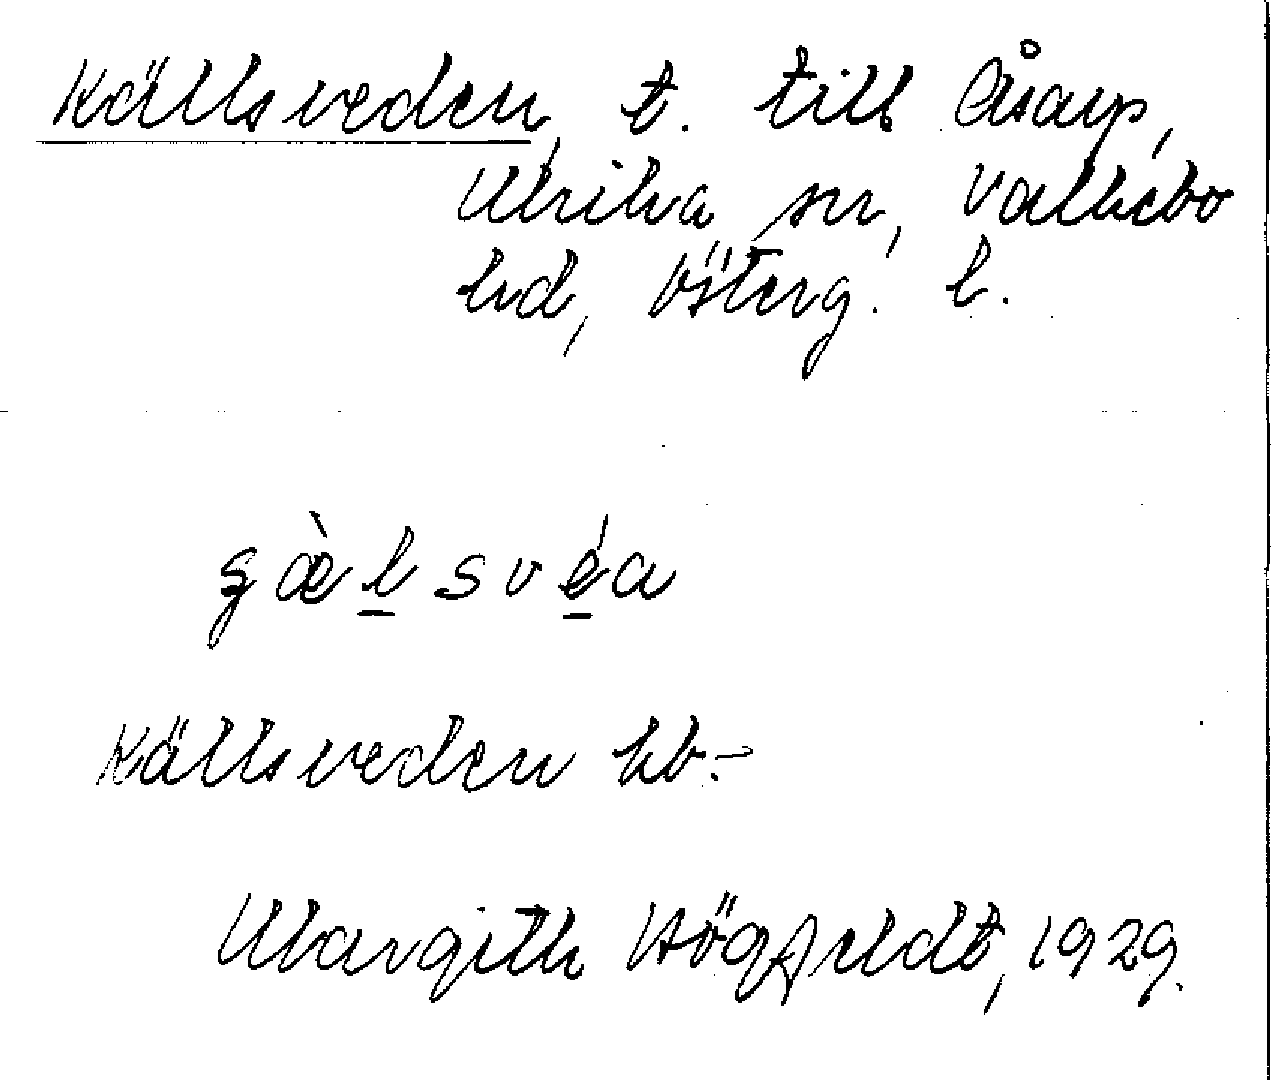 Källsveden, t. till Åsarp,
Ulrika sn, Valkebo
hd, Österg. l.
Källsveden kb.
Margith Högfeldt, 1929.